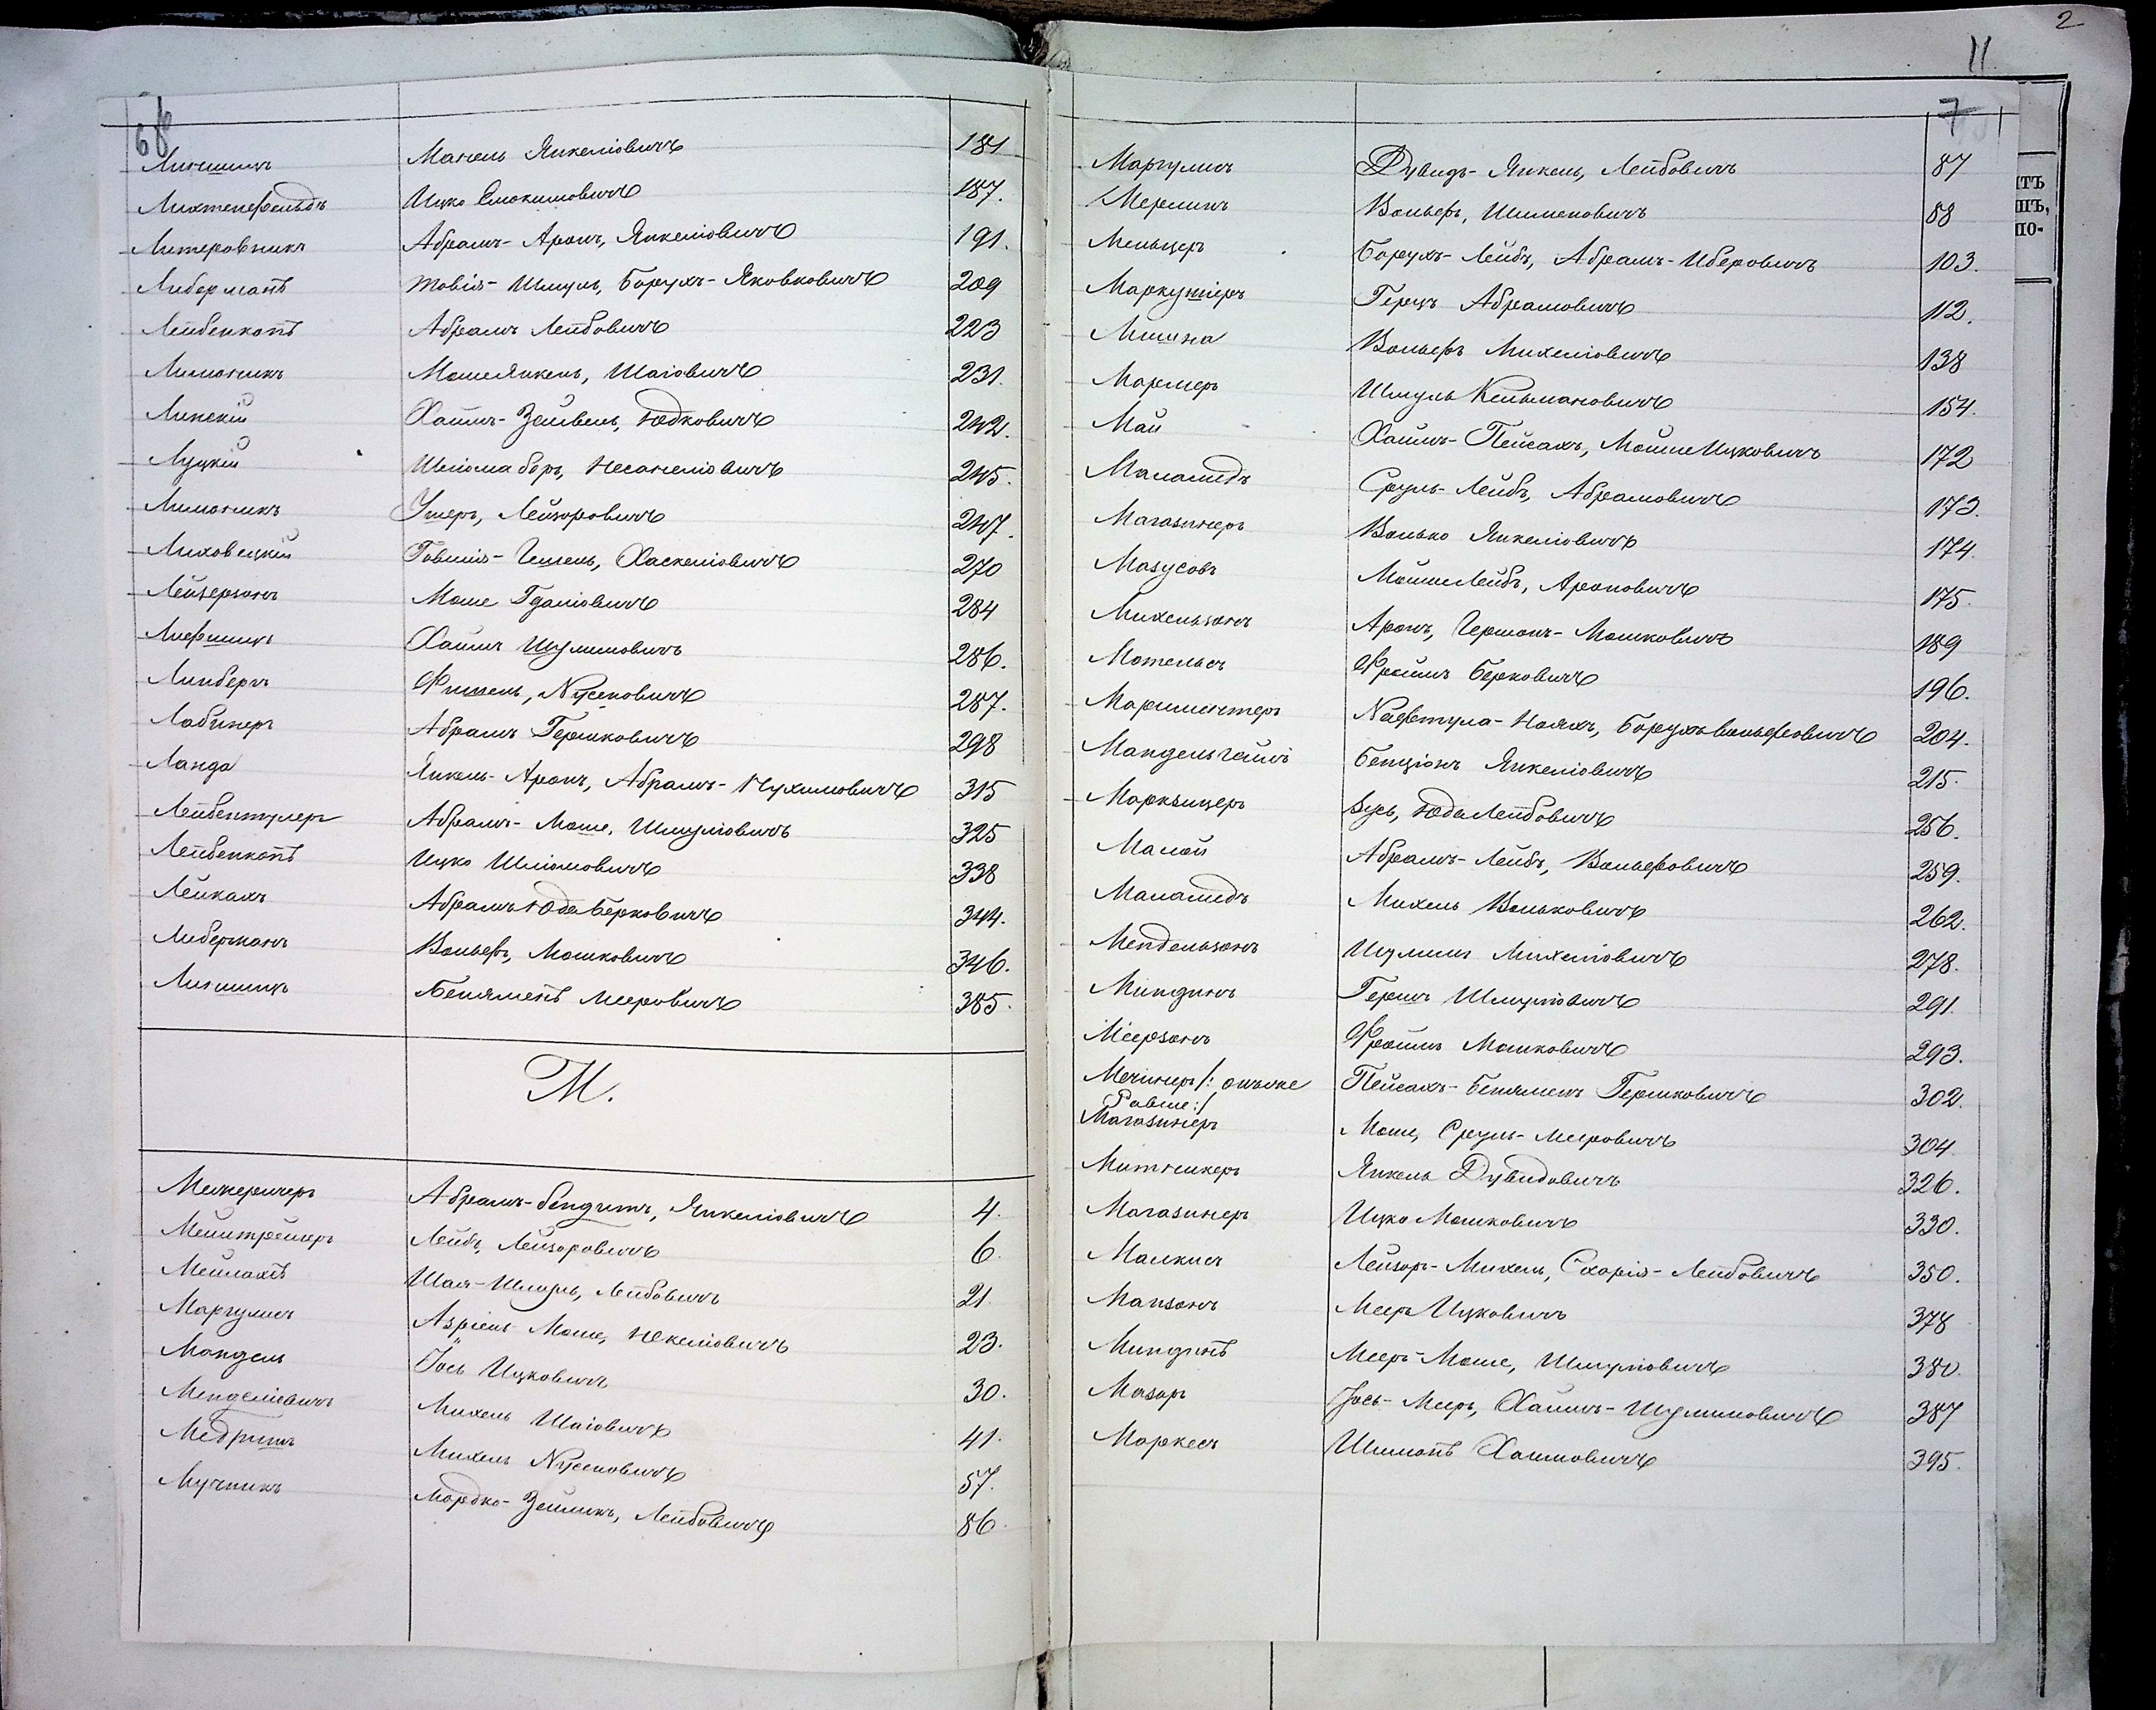 2
11
68
7
Манель Янкеліовичъ 181
Лихтенфельдъ Ицко Емокимовичъ 187.
Литеровникъ Абрамъ-Аронъ, Янкеліовичъ 191.
Либерманъ Товія-Шмуль, Борухъ-Яковковичъ 209
Лейбенконъ Абрамъ Лейбовичъ 223
Лимоникъ МошеЯнкель, Шаіовичъ 231.
Липскій Хаимъ-Зейвель, Юдковичъ 242.
Луцкій Шлiома боръ, Несанеліовичъ 245.
Лимоникъ Ушеръ, Лейзоровичъ 247.
Лиховецкій Гешель, Хаскеліовичъ 270
Лейзерзонъ Моше Гдаліовичъ 284
Лифшицъ Хаимъ Шулимовичъ 286.
Линбергъ Фишель, Нусеновичъ 287.
Лабинеръ Абрамъ Гершковичъ 298
Ланда Янкель-Аронъ, Абрамъ-Нухимовичъ 315
Лейбентулер Абрамъ-Моше, Шмуліовичъ 325
Лейбенконъ Ицко Шліомовичъ 338
Лейкахъ АбрамъЮда Берковичъ 344.
Либерманъ Вольфъ, Мошковичъ 346.
Лившицъ Беняменъ Мееровичъ 385.
М.
Межеричеръ Абрамъ-бендитъ, Янкеліовичъ 4.
Мейтрейгеръ Лейбъ, Лейзоровичъ 6.
Мейлахъ Шая-Шмуль, Лейбовичъ 21
Маргулисъ Азріель Моше, Юкеліовичъ 23.
Мандель Іось Ицковичъ 30.
Менделіевичъ Михель Шаіовичъ 41.
Медришъ Михель Нусеновичъ 57.
Мучникъ Мордко-Зейликъ, Лейбовичъ 86
Маргулисъ Дувидъ-Янкель, Лейбовичъ 87
Мерлинъ Вольфъ, Шименовичъ 88
Мельцеръ Борухъ-Лейбъ, Абрамъ-Иберовичъ 103.
Маркушеръ Герцъ Абрамовичъ 112.
Мишна Вольфъ Михеліовичъ 138
Мармеръ Шмуль Кельмановичъ 154.
Май Хаимъ-Пейсахъ, МойшеИцковичъ 172
Маламедъ Сруль-Лейбъ, Абрамовичъ 173.
Магазинеръ Волько Янкеліовичъ 174.
Мазусовъ МойшеЛейбъ, Ароновичъ 175.
Михельзонъ Аронъ, Гершонъ-Мошковичъ 189
Мотельсъ Фроимъ Берковичъ 196.
Нафтула-Нояхъ, БорухъВольфовичъ 204.
Мандельгеймъ Бенціонъ Янкеліовичъ 215.
Марквицеръ Зусь, ЮдаЛейбовичъ 256.
Малой Абрамъ-Лейбъ, Вольфовичъ 259.
Маламедъ Михель Вольковичъ 262.
Мендельзонъ Шулимъ Михеліовичъ 278.
Миндинъ Гершъ Шмуліовичъ 291.
Меерзонъ Фроимъ Мошковичъ 293.
Мечинеръ /: онъже Пейсахъ-Беняменъ Гершковичъ 302.
Равше:/
Магазинеръ Моше, Сруль-Мееровичъ 304
Митникеръ Янкель Дувидовичъ 326.
Магазинеръ Ицко Мошковичъ 330.
Малкисъ Лейзоръ-Михель, Схарія-Лейбовичъ 350.
Манзонъ Мееръ Ицковичъ 378
Миндинъ Мееръ-Моше, Шмуліовичъ 380.
Мазоръ Іось-Мееръ, Хаимъ-Шулимовичъ 387
Маркесъ Шимонъ Хаимовичъ 395.
ИТЪ
ШЪ,
ПО-